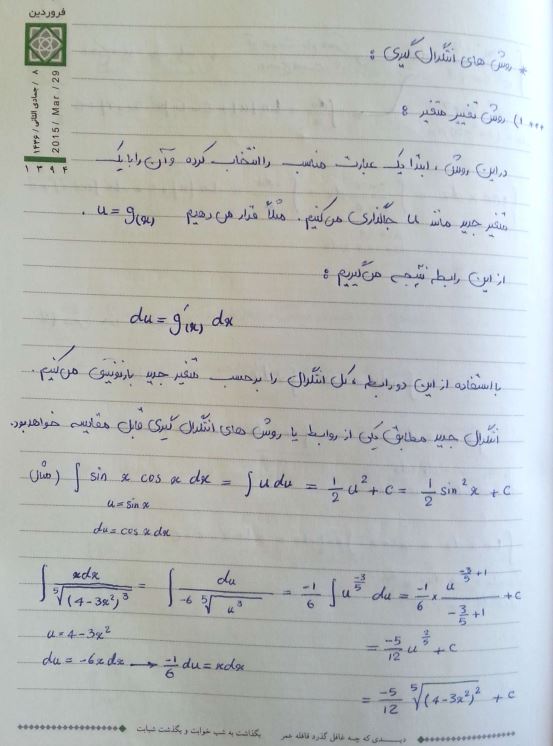 فروردین
۸ / جمادی الثانی / ۱۴۳۶
2015 / Mar / 29
۱۳۹۴
* روش های انتگرال گیری :
*** ۱) روش تغییر متغیر :
در این روش ، ابتدا یک عبارت مناسب را انتخاب کرده و آن را با یک
متغیر جدید مانند u جایگذاری می کنیم . مثلاً قرار می دهیم u = g(x) .
از این رابطه نتیجه می گیریم :
du = g'(x) dx
با استفاده از این دو رابطه ، کل انتگرال را برحسب متغیر جدید بازنویسی می کنیم .
انتگرال جدید مطابق یکی از روابط یا روش های انتگرال گیری قابل مقایسه خواهد بود.
مثال) ∫ sin x cos x dx = ∫ u du = 1/2 u² + c = 1/2 sin² x + c
u = sin x
du = cos x dx
∫ xdx / ⁵√(4-3x²)³ = ∫ du / -6 ⁵√u³ = -1/6 ∫ u^(-3/5) du = -1/6 × u^(-3/5 + 1) / (-3/5 + 1) + c
u = 4-3x²
= -5/12 u^(2/5) + c
du = -6x dx → -1/6 du = x dx
= -5/12 ⁵√(4-3x²)² + c
دیدی که چه غافل گذرد قافله عمر بگذاشت به شب خوابت و بگذشت شبابت